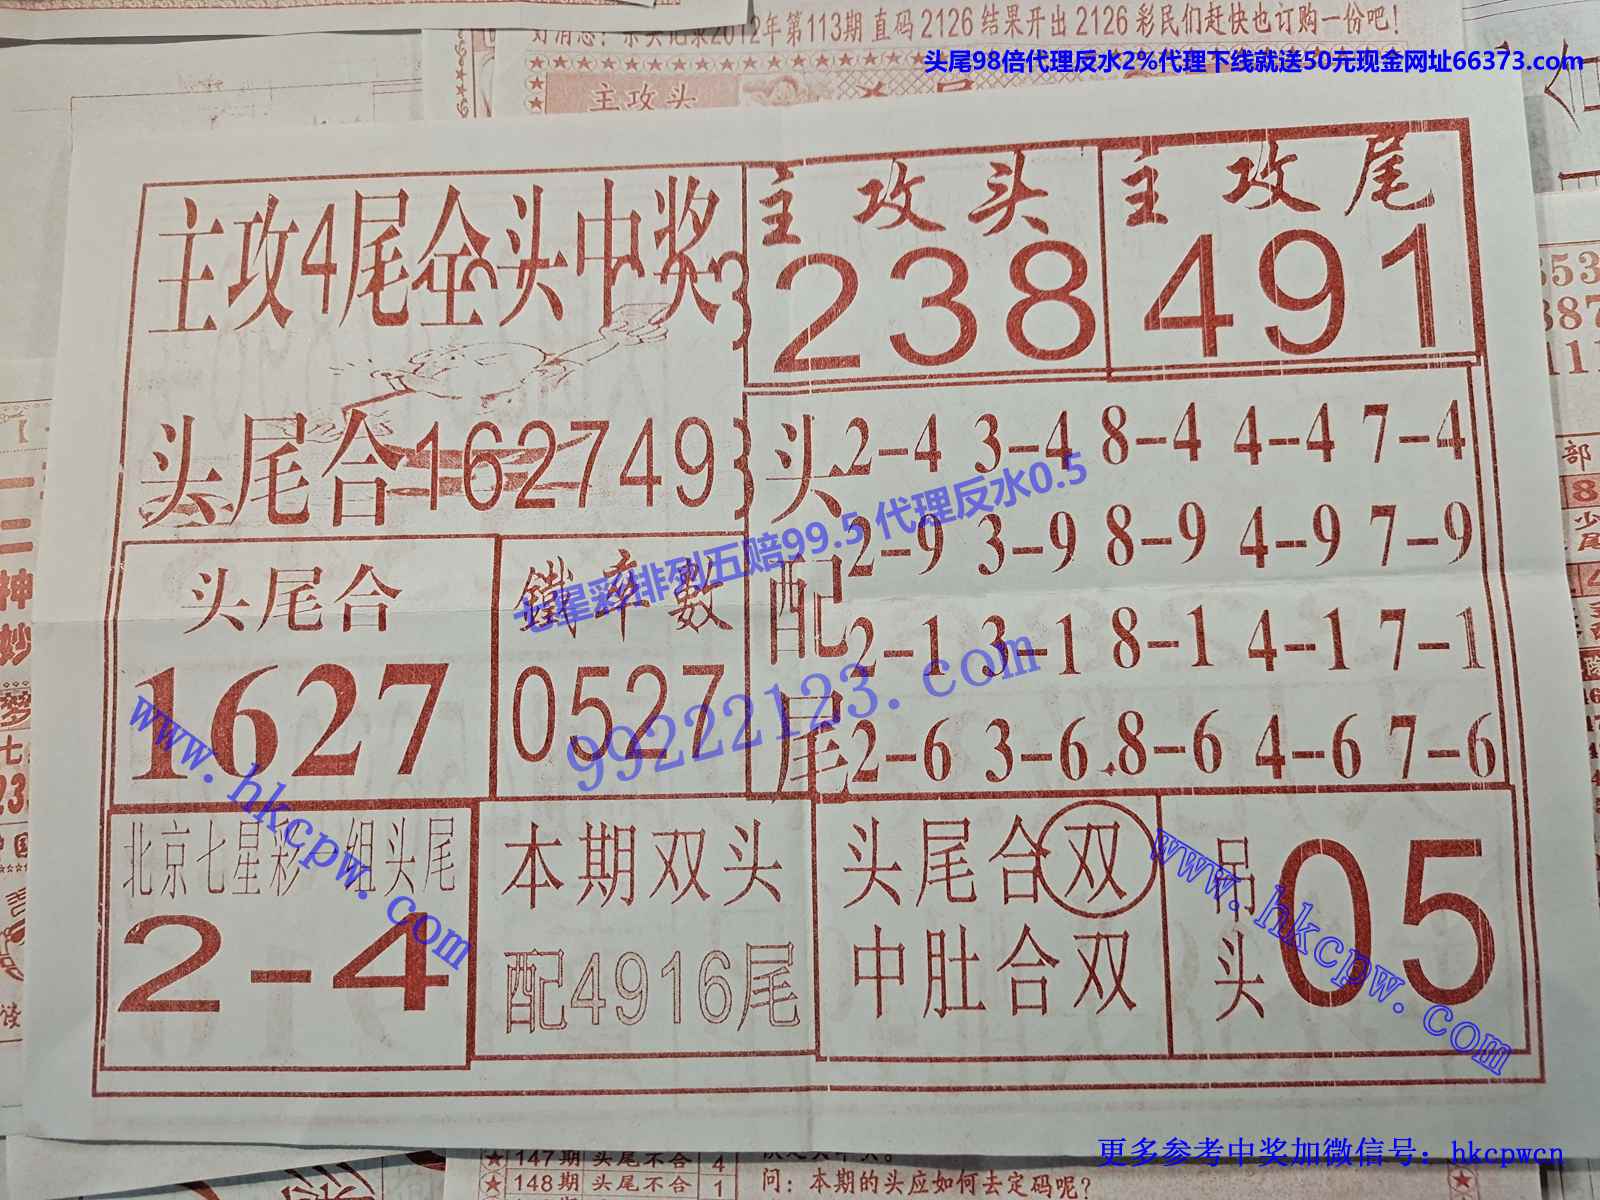 好消息：币头记录2012年第113期 直码 2126 结果开出 2126 彩民们赶快也订购一份吧！
头尾98倍代理反水2%代理下线就送50元现金网址66373.com
主攻头
主攻4尾全头中奖
主攻头
238
主攻尾
491
头尾合162749
头配尾
2-4 3-4 8-4 4-4 7-4
2-9 3-9 8-9 4-9 7-9
2-1 3-1 8-1 4-1 7-1
2-6 3-6 8-6 4-6 7-6
七星彩排列五赔99.5 代理反水0.5
99222123.com
头尾合
1627
鐵率數
0527
www.hkcpw.com
北京七星彩一组头尾
2-4
本期双头
配4916尾
头尾合双
中肚合双
吊头
05
www.hkcpw.com
更多参考中奖加微信号：hkcpwcn
147期 头尾不合 4
148期 头尾不合 1
问：本期的头应如何去定码呢？